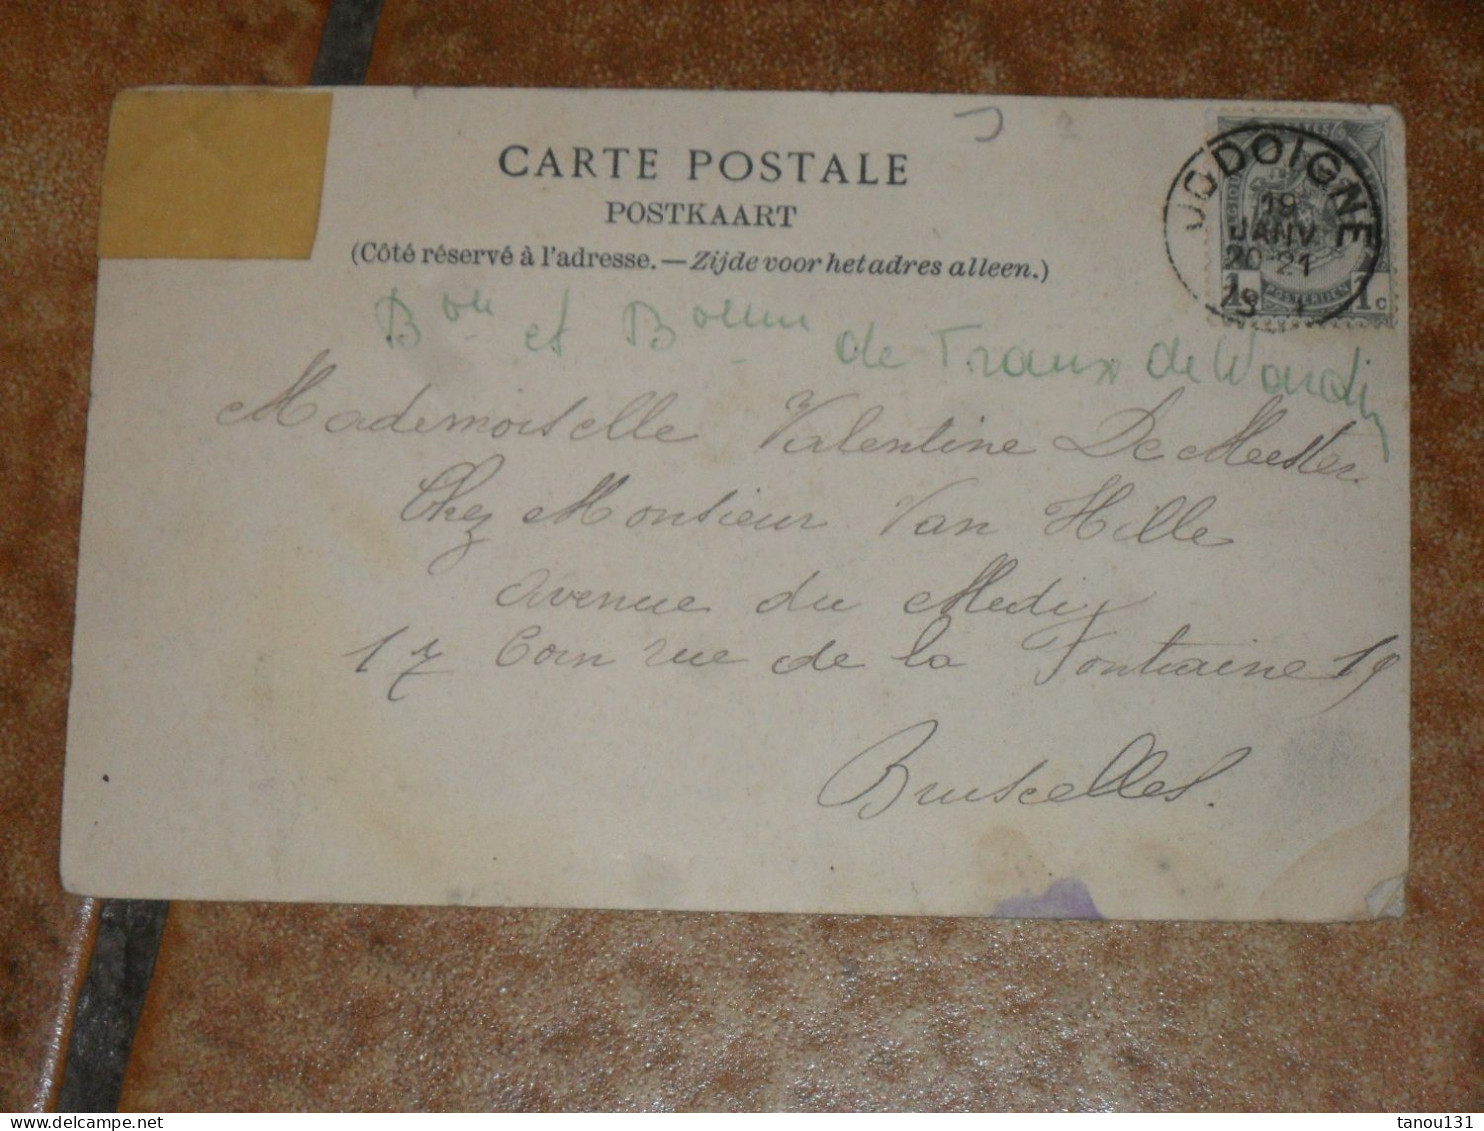 CARTE POSTALE
POSTKAART
(Côté réservé à l'adresse. — Zijde voor het adres alleen.)
JODOIGNE
19
JANV
20-21
1 POSTERIJEN 1 c
Bon et Bonne de Traux de Wardin
Mademoiselle Valentine De Meester
Chez Monsieur Van Hille
avenue du Midi
17 Coin rue de la Fontaine 19
Bruxelles.
tanou131